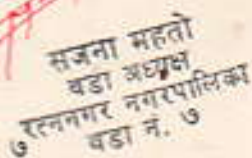 सजना महतो
वडा अध्यक्ष
रत्ननगर नगरपालिका
७ वडा नं. ७